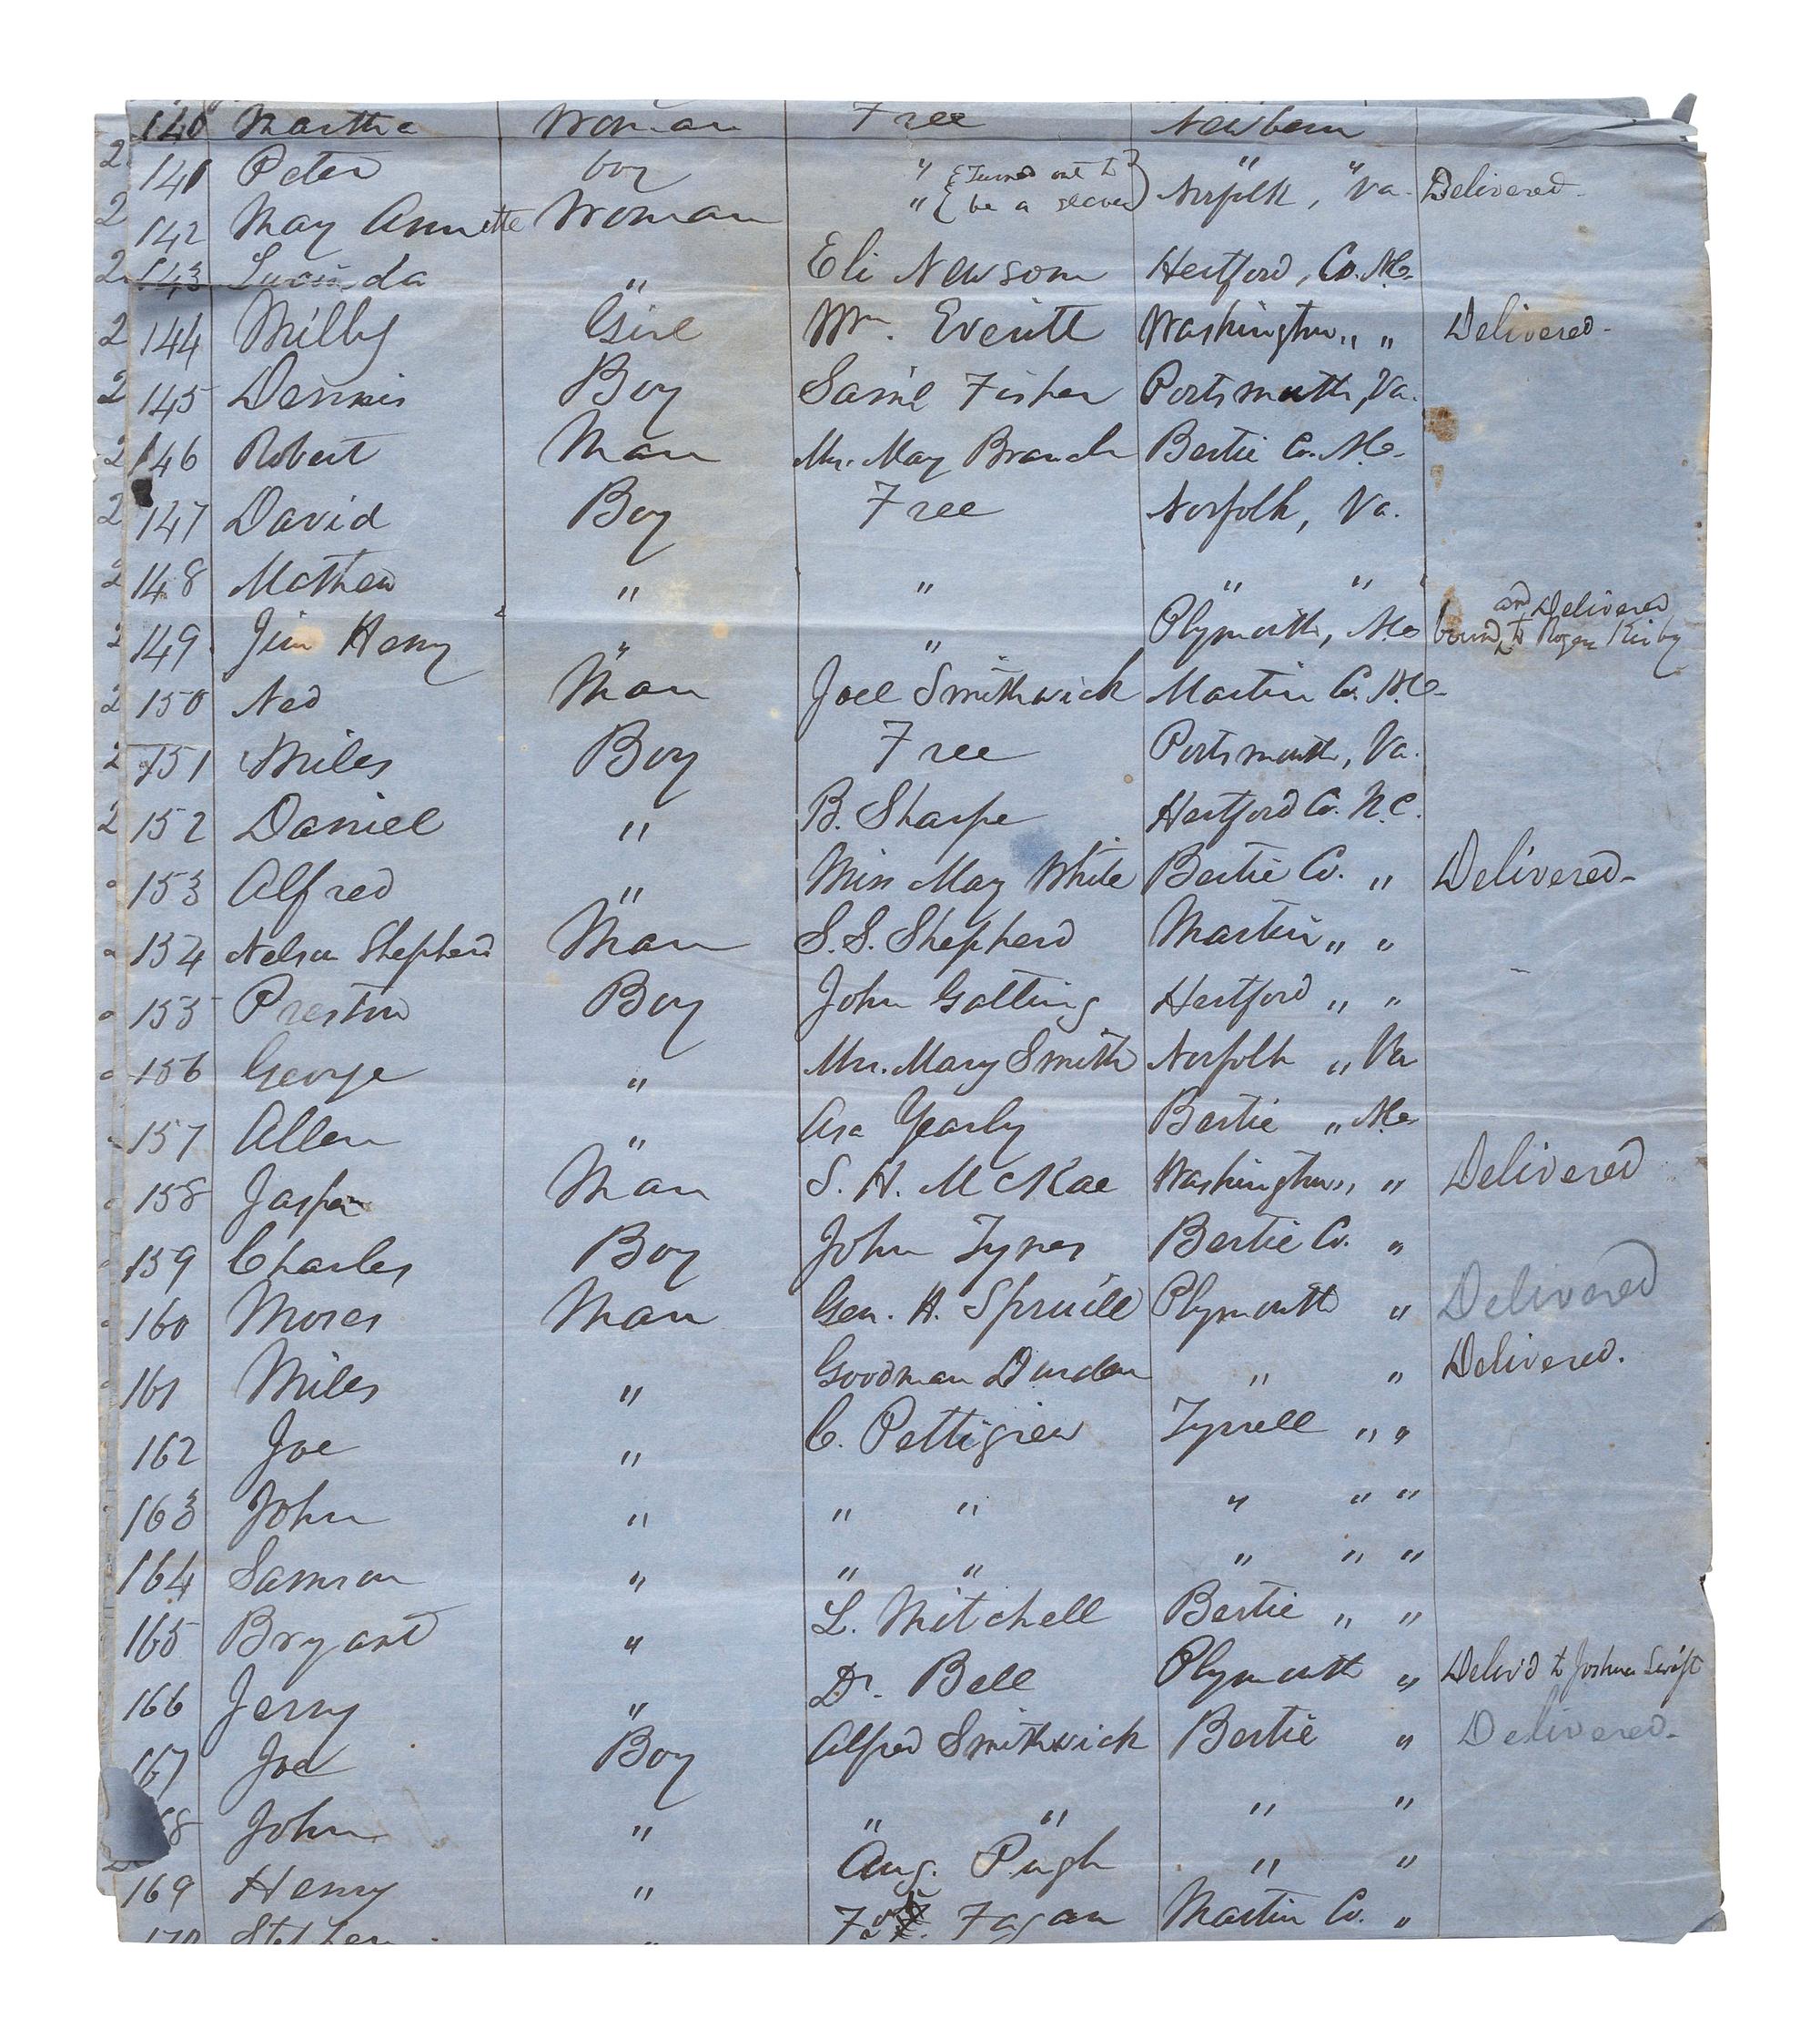 140 Martha Woman Free Newbern
2 141 Peter boy " {Turned out to} " "
2 142 May Annette Woman " {be a slave} Norfolk, Va. Delivered
2 143 Lucinda " Eli Newsom Hertford, Co. N.C.
2 144 Milly Girl Wm. Everitt Washington " " Delivered
2 145 Dennis Boy Sam'l Fisher Portsmouth, Va.
2 146 Robert Man Mrs. May Branch Bertie Co. N.C.
2 147 David Boy Free Norfolk, Va.
2 148 Mathew " " " "
2 149 Jim Henry " " Plymouth, N.C. bound to Roger Kirby and Delivered
2 150 Ned Man Joel Smithwick Martin Co. N.C.
2 151 Miles Boy Free Portsmouth, Va.
2 152 Daniel " B. Sharpe Hertford Co. N.C.
153 Alfred " Miss May White Bertie Co. " Delivered
154 Nelson Shepherd Man S. S. Shepherd Martin " "
155 Preston Boy John Gatling Hertford " "
156 George " Mrs. Mary Smith Norfolk " Va
157 Allen " Asa Yearly Bertie " N.C.
158 Jasper Man S. H. McRae Washington " " Delivered
159 Charles Boy John Tyner Bertie Co. "
160 Moses Man Gen. H. Spruill Plymouth " Delivered
161 Miles " Goodman Durden " " Delivered.
162 Joe " C. Pettigrew Tyrrell " "
163 John " " " " " "
164 Samson " " " " " "
165 Bryant " L. Mitchell Bertie " "
166 Jerry " Dr. Bell Plymouth " Deliv'd to Joshua Swift
167 Joe Boy Alfred Smithwick Bertie " Delivered
68 John " " " " "
169 Henry " Aug. Pugh " "
170 Stephen " Fagan Martin Co. "